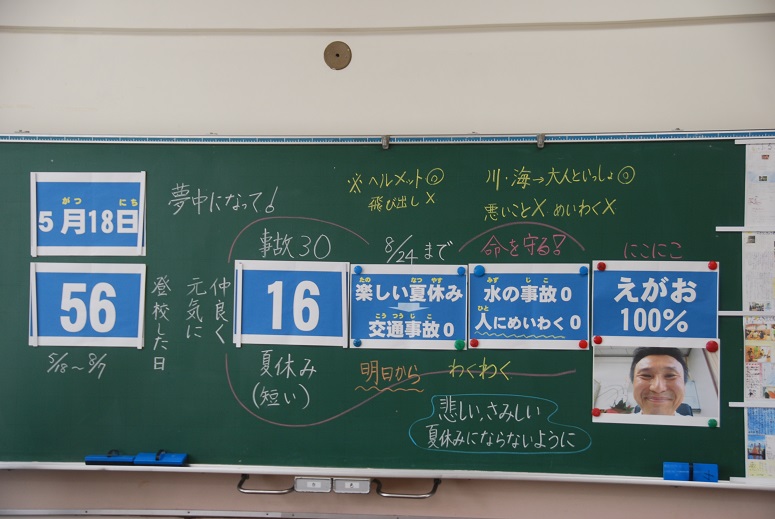 がつ にち
5月18日
夢中になって!
56
登校した日
5/18～8/7
仲良く
元気に
事故30
16
夏休み
(短い)
※ヘルメット◎
飛び出し×
8/24まで
たの なつ やす
楽しい夏休み
こう つう じ こ
交通事故0
明日から
川・海→大人といっしょ◎
悪いこと× めいわく×
命を守る!
みず じ こ
水の事故0
ひと
人にめいわく0
わくわく
にこにこ
えがお
100%
悲しい、さみしい
夏休みにならないように